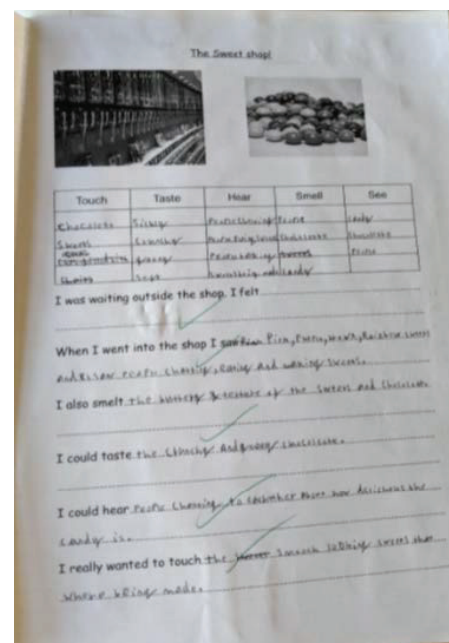 The Sweet shop!
Touch Taste Hear Smell See
Chocolate People chewing candy
Sweets Crunchy Chocolate Chocolate
gooey People talking sweets
candy
I was waiting outside the shop. I felt
When I went into the shop I saw Pink, Purple, brown, Rainbow sweets
and I saw People chewing, eating and making sweets.
I also smelt the buttery texture of the sweets and Chocolate
I could taste the crunchy and gooey chocolate.
I could hear People chewing to each other how delicious the
candy is.
I really wanted to touch the smooth looking sweets that
where being made.